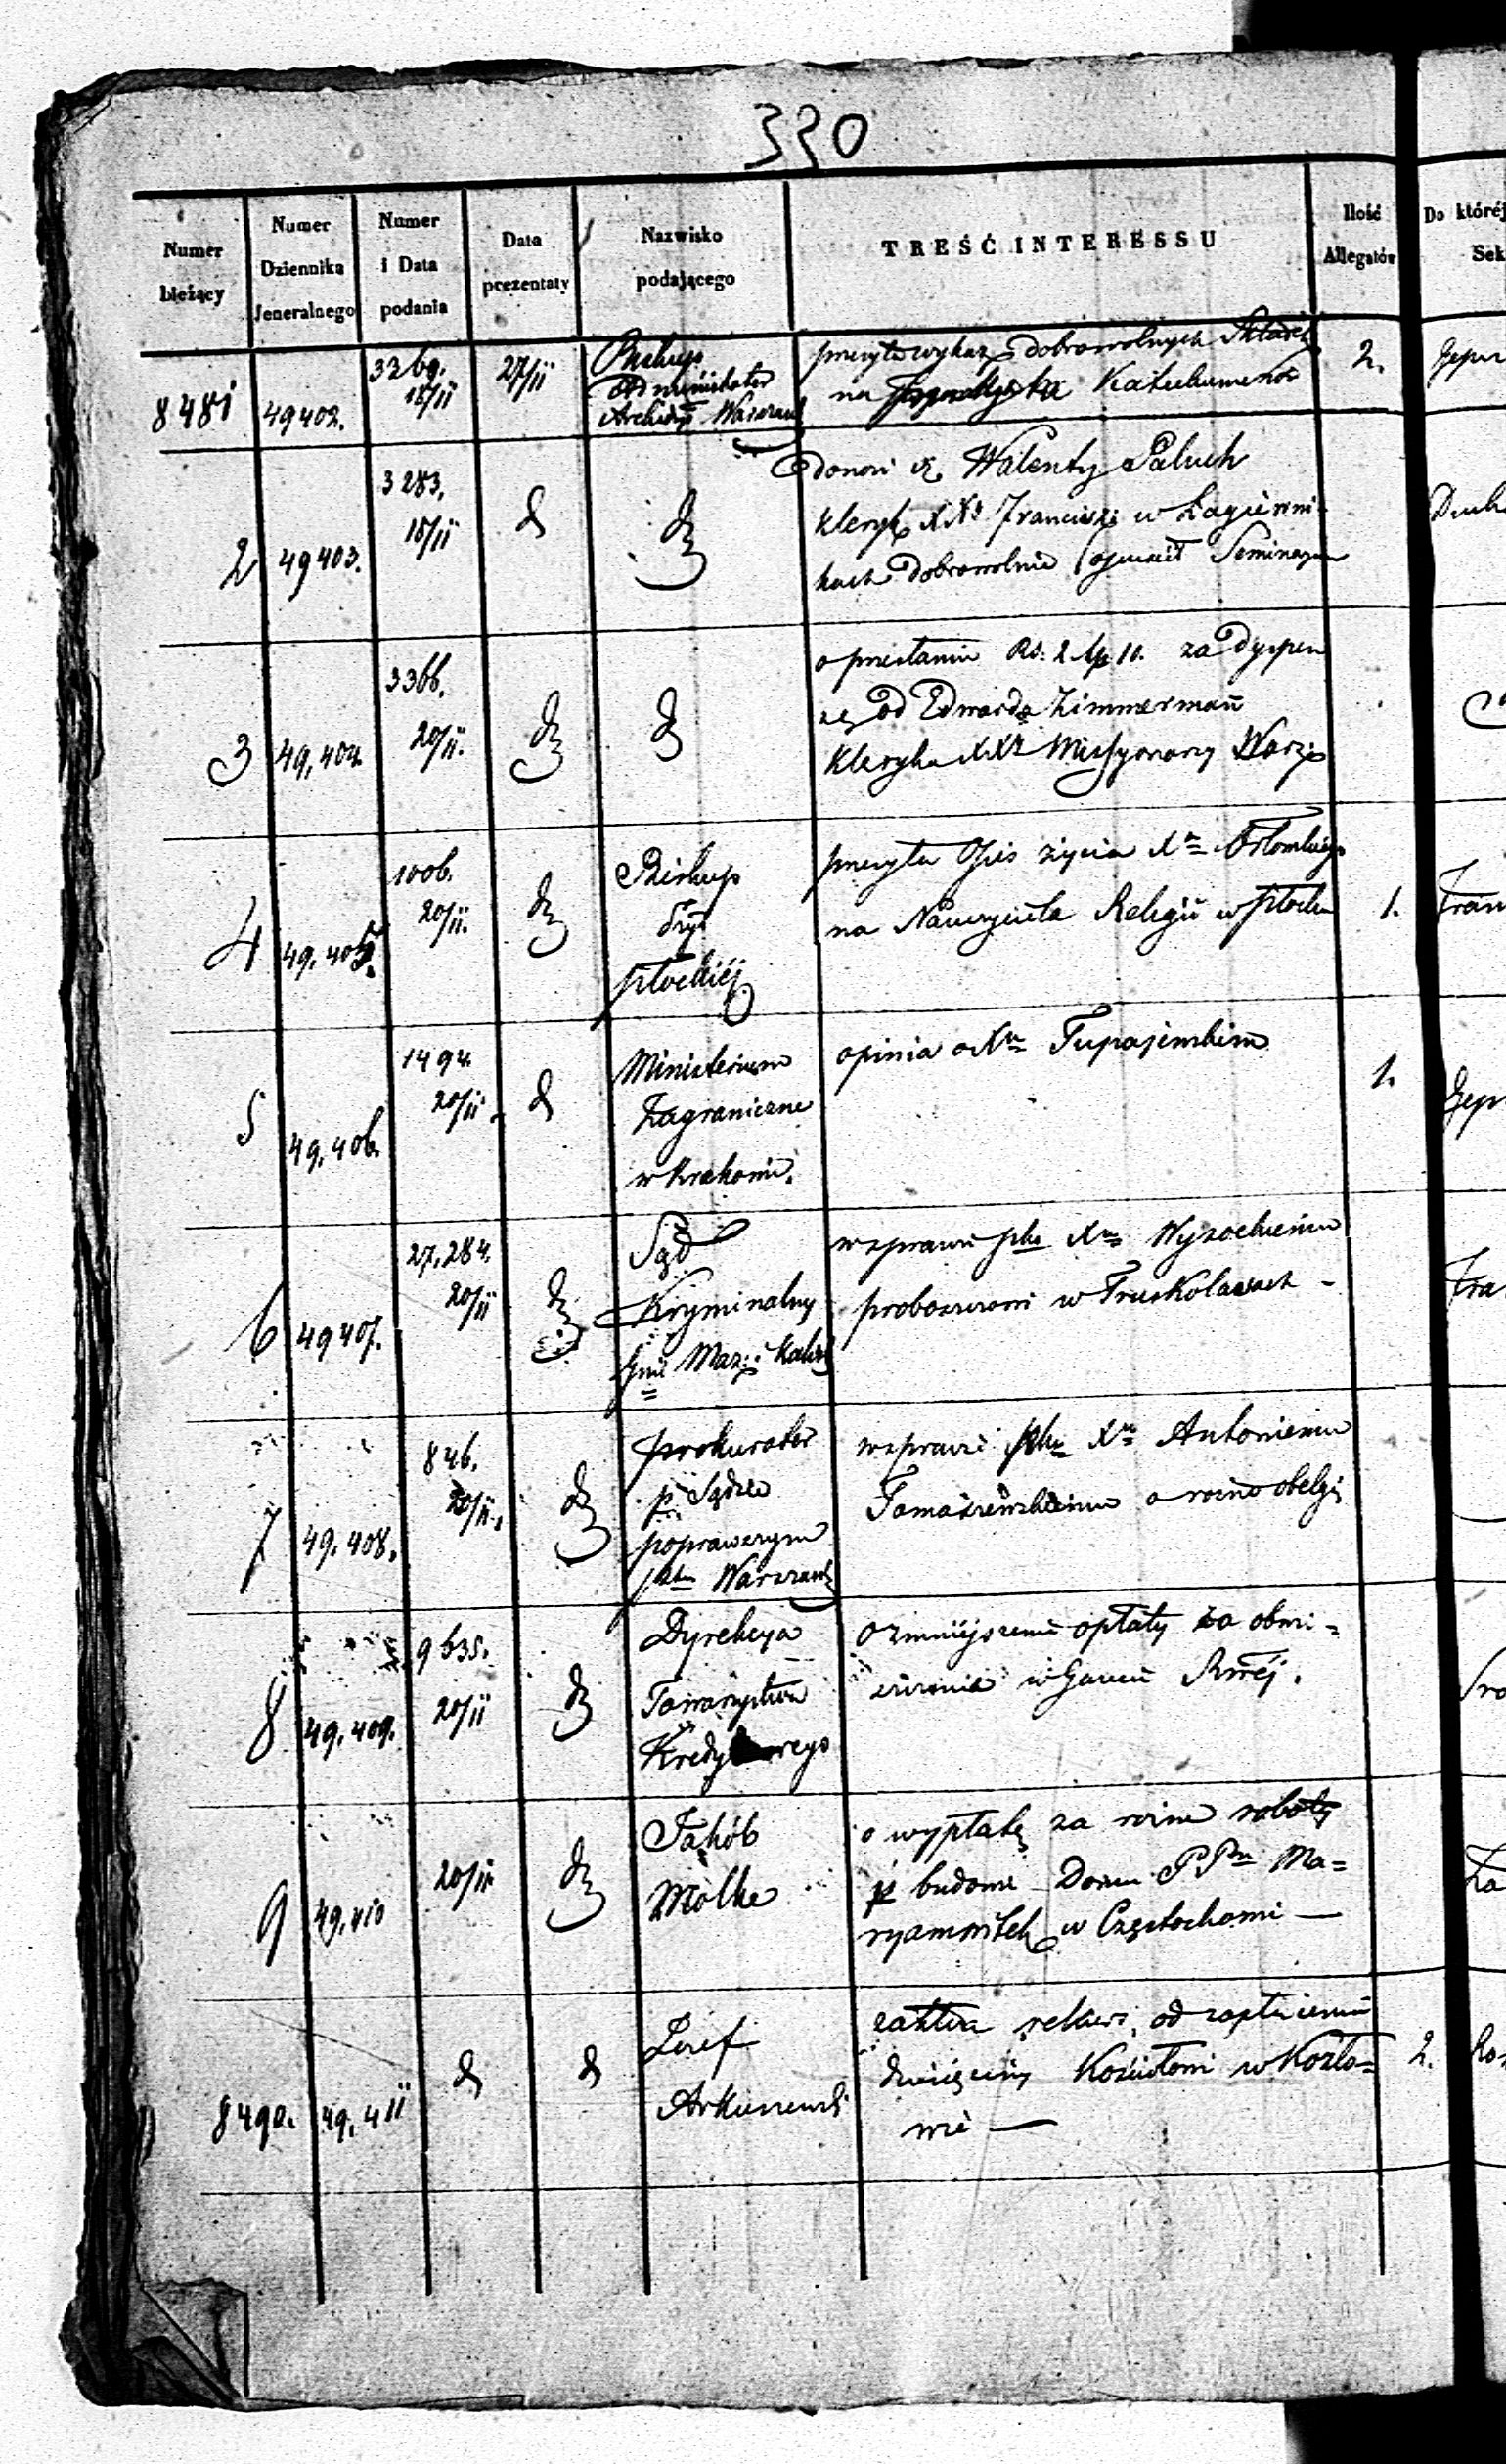 330
Numer bieżący
Numer Dziennika Jeneralnego
Numer i Data podania
Data prezentaty
Nazwisko podającego
TREŚĆ INTERESSU
Ilość Allegatów
Do któréj Sek
8481 49402. 3269. 18/11 27/11
Biskup
Administrator
Archidyi Warszaw
przesyła wykaz dobrowolnych Składek
na Katechumenów
2.
2 49403. 3283. 18/11 d
donosi że Walenty Paluch
kleryk XXw Franciszk w Łagiewni
kach dobrowolnie opuścił Seminaryum
3 49,404. 3366. 20/11. d d
o przesłaniu Rs. 2 kp 10. za dyspen
zę od Edwarda Zimmermann
Kleryka XXy Missyonarzy Warz
4 49.405. 1006. 20/11. d
Biskup
Dyi
płockiéj
przesyła Opis życia Xa
na Nauczyciela Religii w płocku
1.
5 49,406. 1494. 20/11 d
Ministerium
Zagraniczne
w Krakowie.
opinia o Xu Tupajewskim
1.
6 49407. 27,284. 20/11 d
Sąd
Kryminalny
Gnii Maz: i Kalis
w sprawie pko Xu Wysockiemu
proboszczowi w Truskolasach -
7 49.408. 846. 20/11. d
prokurator
p. Sądzie
poprawczym
pttu Warszaw
w sprawie pko Xu Antoniemu
Tomaszewskiemu o różne obelgi
8 49.409. 9635. 20/11 d
Dyrekcya
Towarzystwa
Kredytowego
o zmniejszenie opłaty za obwi=
eszczenia w Gazecie Rząéj.
9 49,410 20/11 d
Jakób
Molke
o wypłatę za różne roboty
p budowie Domu PPn Ma=
ryawitek w Częstochowie —
8490. 49,411 d d
Józef
Arkuszewski
zakłada rekurs, od zapłacenia
dziesięciny Kościołowi w Kozło=
wie —
2.